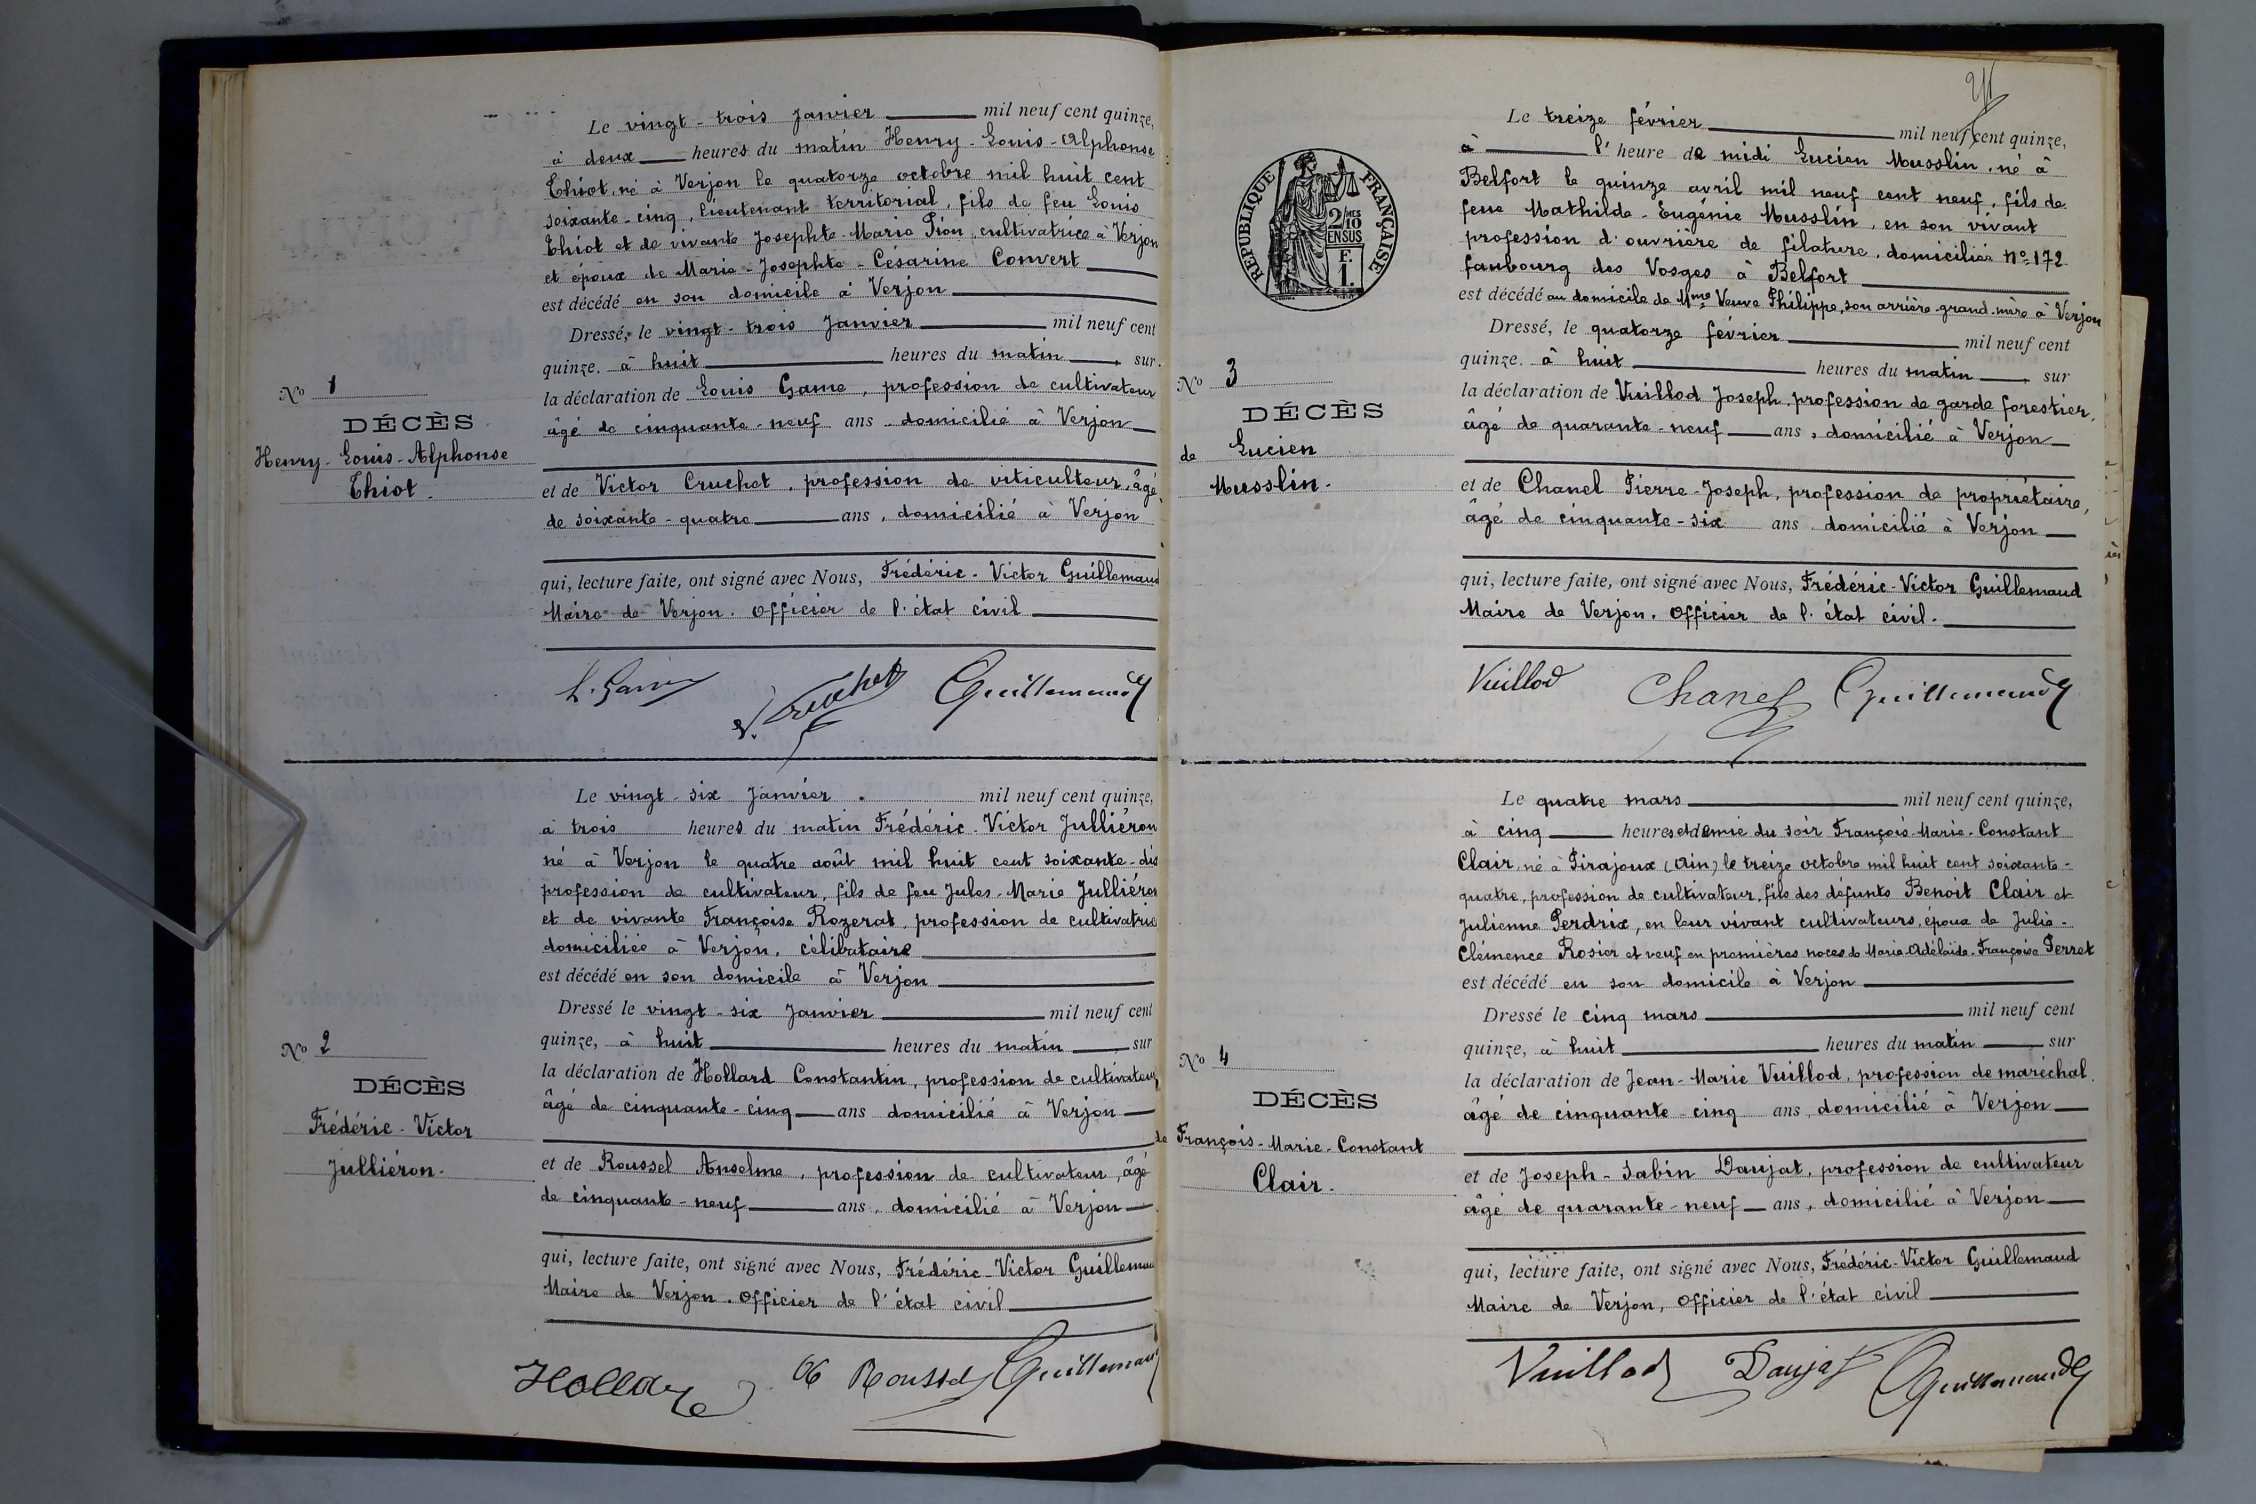 Le vingt-trois Janvier mil neuf cent quinze,
à deux heures du matin Henry-Louis-Alphonse
Thiot, né à Verjon le quatorze octobre mil huit cent
soixante-cinq, lieutenant territorial, fils de feu Louis
Thiot et de vivante Josephte-Marie Pion, cultivatrice à Verjon
et époux de Marie-Josephte-Césarine Convert
est décédé en son domicile à Verjon
Dressé, le vingt-trois Janvier mil neuf cent
quinze. à huit heures du matin sur
la déclaration de Louis Game, profession de cultivateur
âgé de cinquante-neuf ans domicilié à Verjon
et de Victor Cruchet, profession de viticulteur, âgé
de soixante-quatre ans, domicilié à Verjon
qui, lecture faite, ont signé avec Nous, Frédéric-Victor Guillemaud
Maire de Verjon. Officier de l'état civil
V. Cruchet Guillemaud
No 1
DÉCÈS
Henry-Louis-Alphonse
Thiot.
Le vingt-six Janvier mil neuf cent quinze,
à trois heures du matin Frédéric-Victor Julliéron
né à Verjon le quatre août mil huit cent soixante-dix
profession de cultivateur, fils de feu Jules-Marie Julliéron
et de vivante Françoise Rozerat, profession de cultivatrice
domiciliée à Verjon, célibataire
est décédé en son domicile à Verjon
Dressé le vingt-six Janvier mil neuf cent
quinze, à huit heures du matin sur
la déclaration de Hollard Constantin, profession de cultivateur
âgé de cinquante-cinq ans domicilié à Verjon
et de Roussel Anselme, profession de cultivateur, âgé
de cinquante-neuf ans, domicilié à Verjon
qui, lecture faite, ont signé avec Nous, Frédéric-Victor Guillemaud
Maire de Verjon. Officier de l'état civil
Hollard Roussel Guillemaud
No 2
DÉCÈS
Frédéric-Victor
Julliéron.
RÉPUBLIQUE FRANÇAISE
2/10
MES
EN SUS
F.
1.
Le treize février mil neuf cent quinze,
à l'heure de midi Lucien Musslin, né à
Belfort le quinze avril mil neuf cent neuf, fils de
feue Mathilde-Eugénie Musslin, en son vivant
profession d'ouvrière de filature, domiciliée No 172
faubourg des Vosges à Belfort
est décédé au domicile de Mme Veuve Philippe, son arrière-grand-mère à Verjon
Dressé, le quatorze février mil neuf cent
quinze. à huit heures du matin sur
la déclaration de Vuillod Joseph, profession de garde forestier,
âgé de quarante-neuf ans, domicilié à Verjon
et de Chanel Pierre-Joseph, profession de propriétaire,
âgé de cinquante-six ans domicilié à Verjon
qui, lecture faite, ont signé avec Nous, Frédéric-Victor Guillemaud
Maire de Verjon. Officier de l'état civil.
Vuillod Chanel Guillemaud
No 3
DÉCÈS
de Lucien
Musslin.
Le quatre mars mil neuf cent quinze,
à cinq heures et demie du soir François-Marie-Constant
Clair, né à Pirajoux (Ain) le treize octobre mil huit cent soixante-
quatre, profession de cultivateur, fils des défunts Benoît Clair et
Julienne Perdrix, en leur vivant cultivateurs, époux de Julie-
Clémence Rosier et veuf en premières noces de Marie-Adélaïde-Françoise Perret
est décédé en son domicile à Verjon
Dressé le cinq mars mil neuf cent
quinze, à huit heures du matin sur
la déclaration de Jean-Marie Vuillod, profession de maréchal
âgé de cinquante-cinq ans, domicilié à Verjon
et de Joseph-Sabin Daujat, profession de cultivateur
âgé de quarante-neuf ans, domicilié à Verjon
qui, lecture faite, ont signé avec Nous, Frédéric-Victor Guillemaud
Maire de Verjon, Officier de l'état civil
Vuillod Daujat Guillemaud
No 4
DÉCÈS
de François-Marie-Constant
Clair.